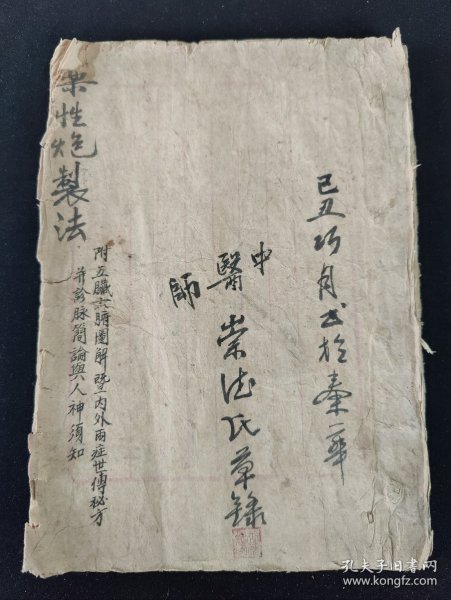 己丑巧月书於秦華
中醫師 崇德氏草錄
藥性炮製法
附五臟六腑圖解暨内外兩症世傳秘方
并診脉簡論與人神須知
孔夫子旧书网
www.kongfz.com